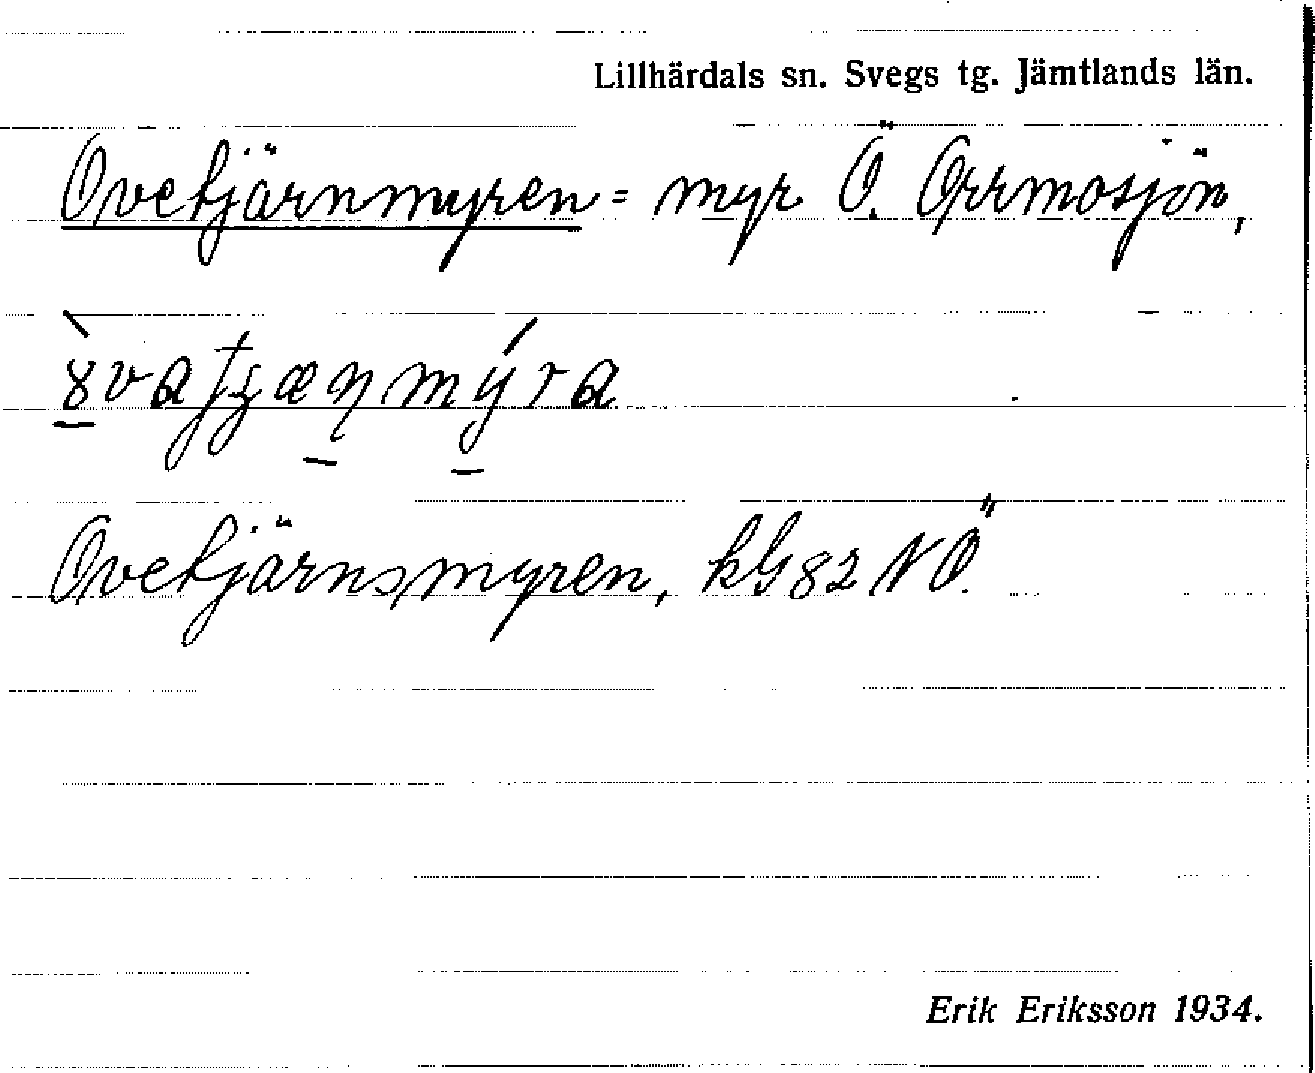 Lillhärdals sn. Svegs tg. Jämtlands län.
Ovetjärnmyren = myr Ö. Orrmosjön,
Ovetjärnsmyren, kG82 NÖ.
Erik Eriksson 1934.